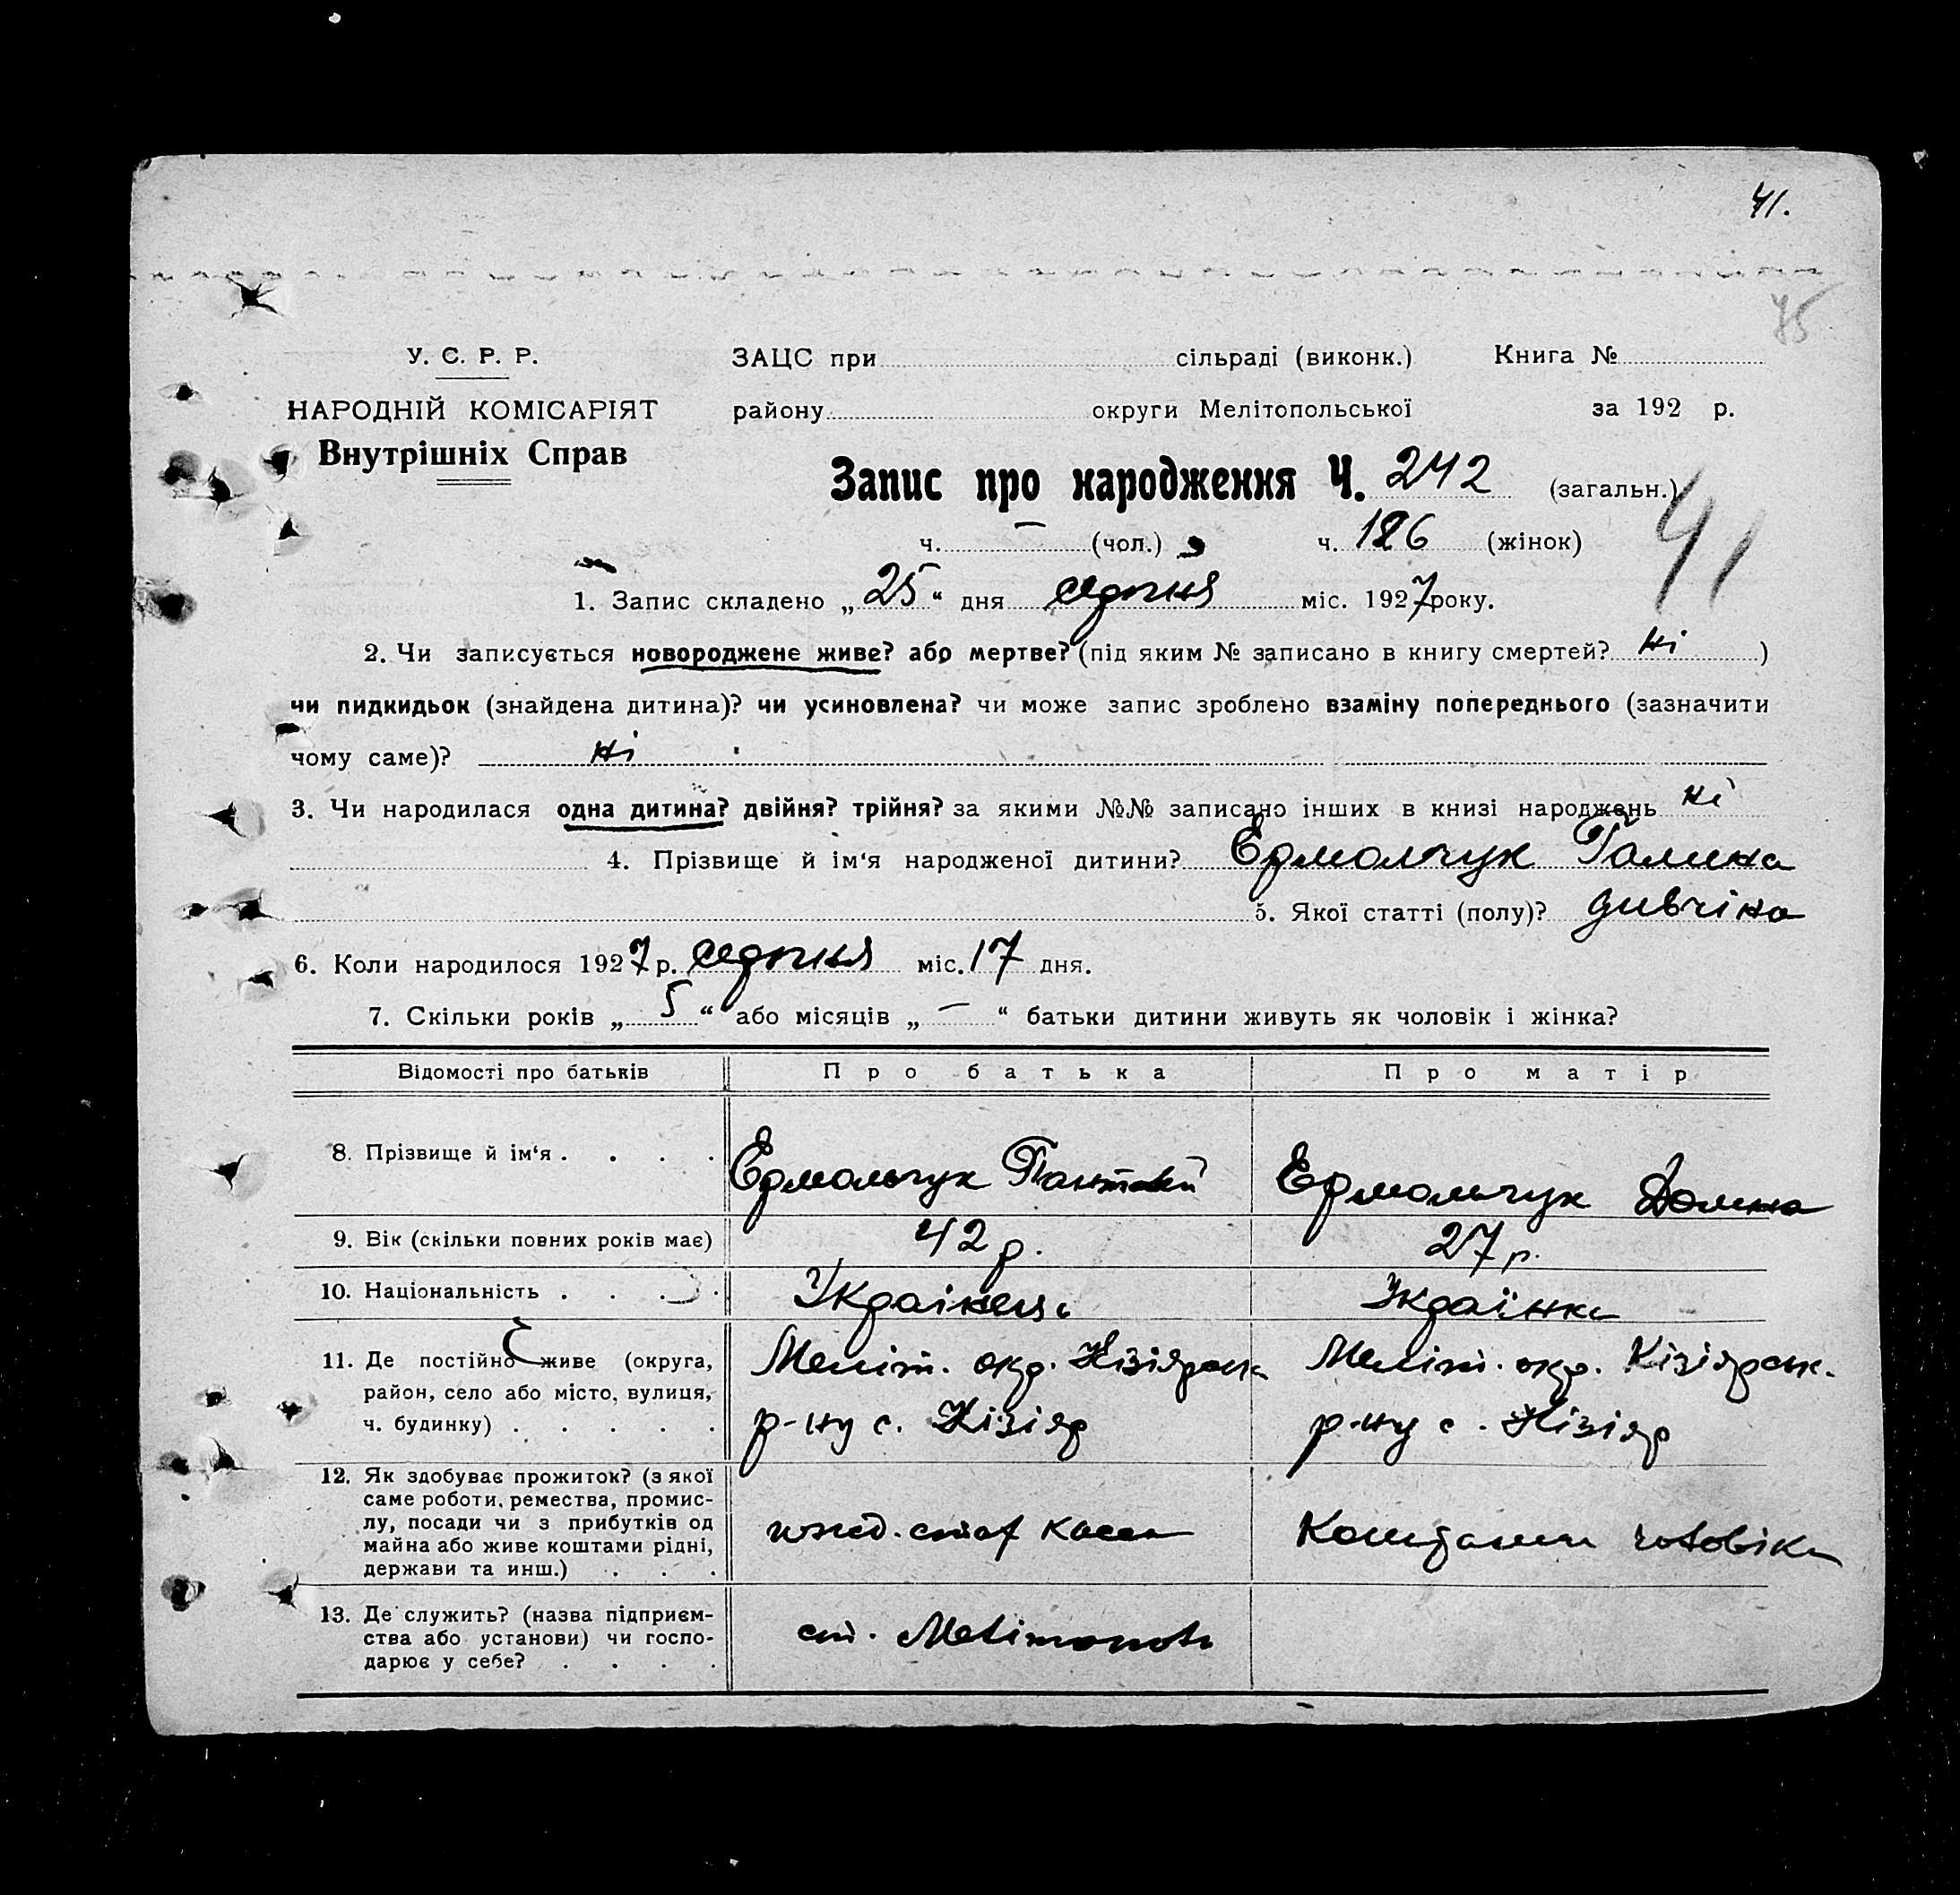 41.
75
У. С. Р. Р.
ЗАЦС при сільраді (виконк.) Книга №
НАРОДНІЙ КОМІСАРІЯТ
району округи Мелітопольської за 192 р.
Внутрішніх Справ
Запис про народження Ч. 242 (загальн.)
41
ч. — (чол.) ч. 126 (жінок)
1. Запис складено „25“ дня серпня міс. 1927 року.
2. Чи записується новороджене живе? або мертве? (під яким № записано в книгу смертей? ні )
чи пидкидьок (знайдена дитина)? чи усиновлена? чи може запис зроблено взаміну попереднього (зазначити
чому саме)? ні
3. Чи народилася одна дитина? двійня? трійня? за якими №№ записано інших в книзі народжень ні
4. Прізвище й ім‘я народженої дитини? Ермольчук Галина
5. Якої статті (полу)? дивчіна
6. Коли народилося 1927 р. серпня міс. 17 дня.
7. Скільки років „5“ або місяців „—“ батьки дитини живуть як чоловік і жінка?
Відомості про батьків Про батька Про матір
8. Прізвище й ім‘я . . . . Ермольчук Ермольчук Домна
9. Вік (скільки повних років має) 42 р. 27 р.
10. Національність . . . . Українець Українка
11. Де постійно живе (округа, Меліт. окр. Кізіярськ. Меліт. окр. Кізіярськ.
район, село або місто, вулиця,
ч. будинку) . . . . . р-ну с. Кізіяр р-ну с. Кізіяр
12. Як здобуває прожиток? (з якої
саме роботи, ремества, промис-
лу, посади чи з прибутків од
майна або живе коштами рідні, каси Коштами чоловіка
держави та инш.) . . .
13. Де служить? (назва підприєм-
ства або установи) чи госпо- ст. Мелітополь
дарює у себе? . . . .